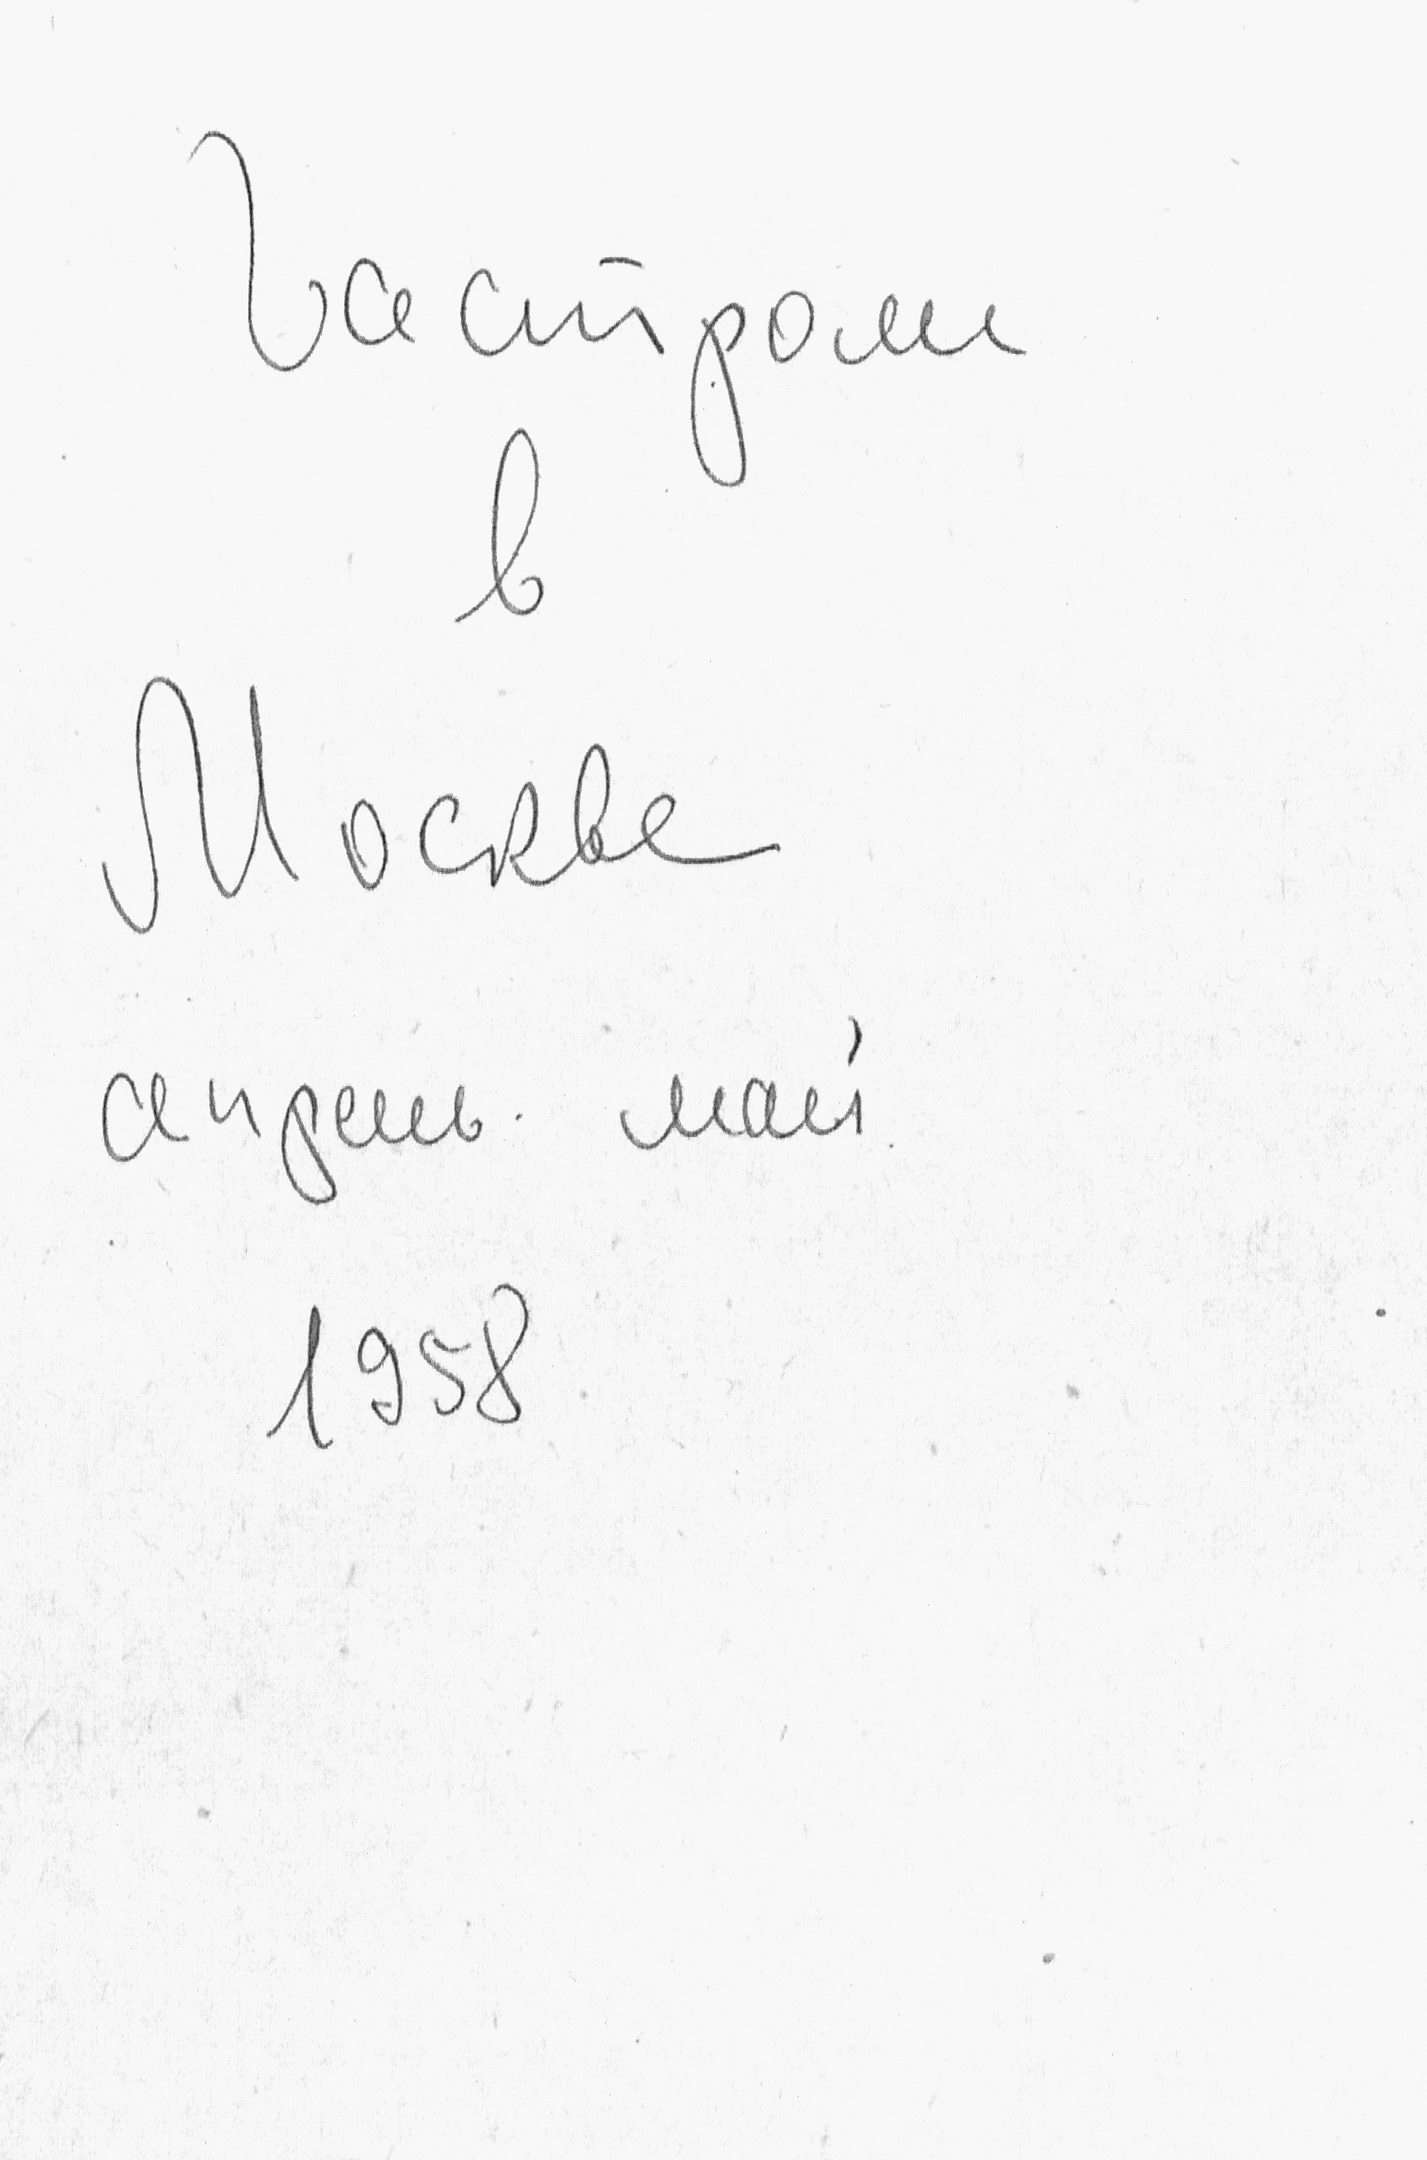 Гастроли
в
Москве
апрель. май
1958